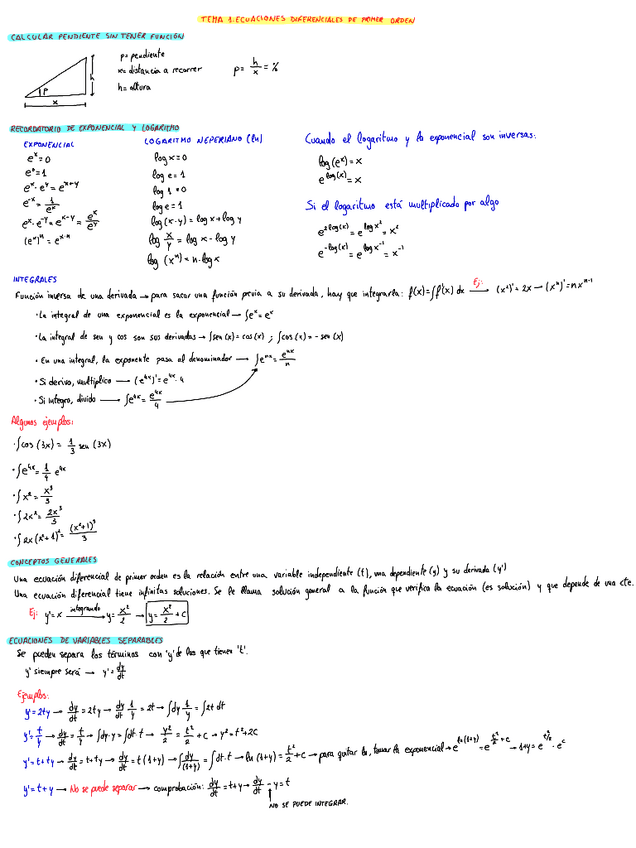 TEMA 1. ECUACIONES DIFERENCIALES DE PRIMER ORDEN
CALCULAR PENDIENTE SIN TENER FUNCIÓN
p = pendiente
x = distancia a recorrer
h = altura
p = h/x = %
P
h
x
RECORDATORIO DE EXPONENCIAL Y LOGARITMO
EXPONENCIAL
eˣ = 0
e⁰ = 1
eˣ · eʸ = eˣ⁺ʸ
e⁻ˣ = 1/eˣ
eˣ · e⁻ʸ = eˣ⁻ʸ = eˣ/eʸ
LOGARITMO NEPERIANO (ln)
log x = 0
log e = 1
log 1 = 0
log e = 1
log (x · y) = log x + log y
log x/y = log x - log y
log (xⁿ) = n · log x
Cuando el logaritmo y la exponencial son inversas:
log (eˣ) = x
e^log(x) = x
Si el logaritmo está multiplicado por algo
e^2log(x) = e^log x² = x²
e^-log(x) = e^log x⁻¹ = x⁻¹
INTEGRALES
Función inversa de una derivada → para sacar una función previa a su derivada, hay que integrarla: f(x) = ∫f'(x) dx Ej: → (x²)' = 2x → (xⁿ)' = nxⁿ⁻¹
· La integral de una exponencial es la exponencial → ∫eˣ = eˣ
· La integral de sen y cos son sus derivadas → ∫sen (x) = cos (x) ; ∫cos (x) = - sen (x)
· En una integral, la exponente pasa al denominador → ∫eⁿˣ = eⁿˣ/n
· Si derivo, multiplico → (e⁴ˣ)' = e⁴ˣ · 4
· Si integro, divido → ∫e⁴ˣ = e⁴ˣ/4
Algunos ejemplos:
· ∫cos (3x) = 1/3 sen (3x)
· ∫e⁴ˣ = 1/4 e⁴ˣ
· ∫x² = x³/3
· ∫2x² = 2x³/3
· ∫2x (x²+1)² = (x²+1)³/3
CONCEPTOS GENERALES
Una ecuación diferencial de primer orden es la relación entre una variable independiente (t), una dependiente (y) y su derivada (y')
Una ecuación diferencial tiene infinitas soluciones. Se le llama solución general a la función que verifica la ecuación (es solución) y que depende de una cte.
Ej: y' = x integrando → y = x²/2 → y = x²/2 + C
ECUACIONES DE VARIABLES SEPARABLES
Se pueden separa los términos con 'y' de los que tienen 't'.
y' siempre será → y' = dy/dt
Ejemplos:
y' = 2ty → dy/dt = 2ty → dy/dt 1/y = 2t → ∫dy 1/y = ∫2t dt
y' = t/y → dy/dt = t/y → ∫dy · y = ∫dt · t → y²/2 = t²/2 + C → y² = t² + 2C
y' = t + ty → dy/dt = t + ty → dy/dt = t (1+y) → ∫dy/(1+y) = ∫dt · t → ln (1+y) = t²/2 + C → para quitar ln, tomar la exponencial → e^ln(1+y) = e^t²/2 + C → 1+y = e^t²/2 · e^c
y' = t + y → No se puede separar → comprobación: dy/dt = t + y → dy/dt - y = t
NO SE PUEDE INTEGRAR.